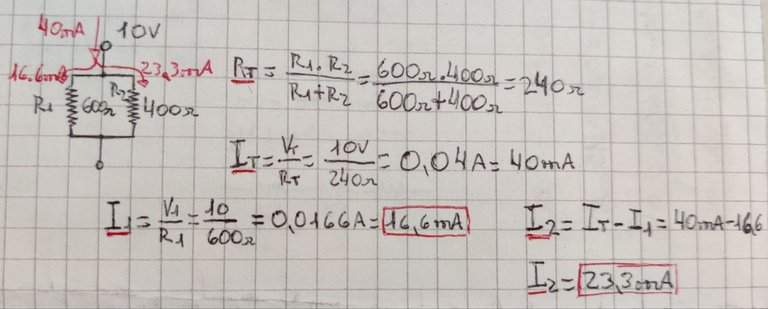 40mA 10V
16.6mA 23,3mA
R1 600Ω R2 400Ω
RT = R1 . R2 / R1 + R2 = 600Ω . 400Ω / 600Ω + 400Ω = 240Ω
IT = VT / RT = 10V / 240Ω = 0,04A = 40mA
I1 = V1 / R1 = 10 / 600Ω = 0,0166A = 16,6mA
I2 = IT - I1 = 40mA - 16,6
I2 = 23,3mA